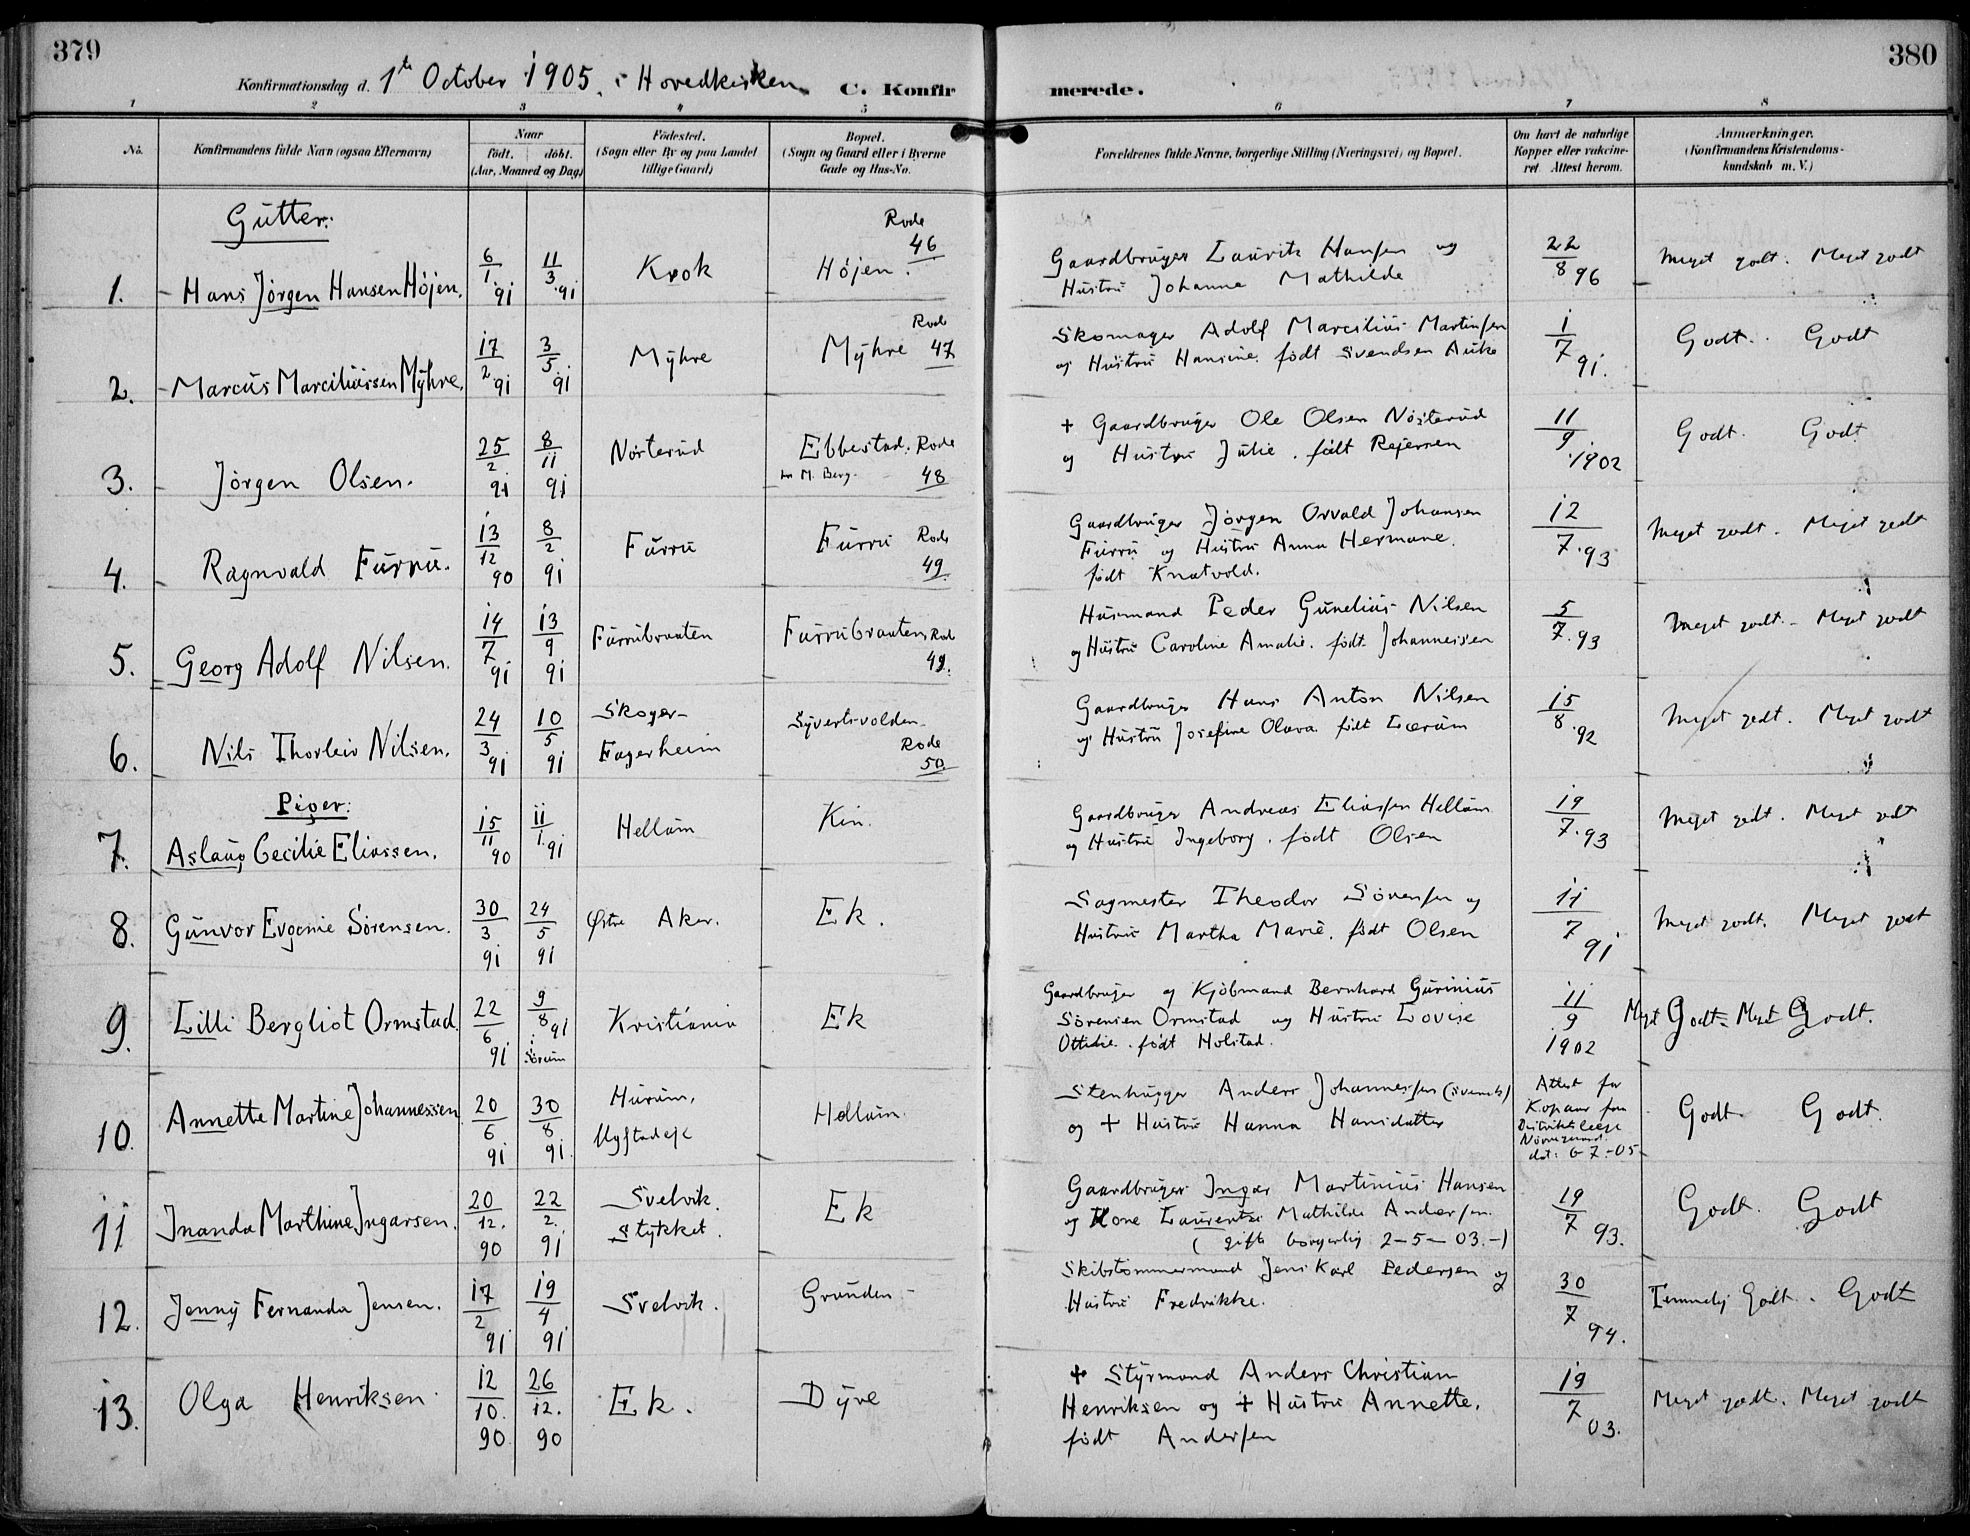 379
380
Konfirmationsdag d. 1ste October 1905, i Hovedkirken
C. Konfirmerede.
1 2 3 4 5 6 7 8
No.
Konfirmandens fulde Navn (ogsaa Efternavn)
Naar
født. døbt.
(Aar, Maaned og Dag)
Fødested.
(Sogn eller By og paa Landet
tillige Gaard)
Bopæl.
(Sogn og Gaard eller i Byerne
Gade og Hus-No.
Forældrenes fulde Navne, borgerlige Stilling (Næringsvei) og Bopæl.
Om havt de naturlige
Kopper eller vakcine-
ret. Attest herom.
Anmærkninger.
(Konfirmandens Kristendoms-
kundskab m. V.)
Gutter:
1. Hans Jørgen Hansen Höjen. 6/1 91 11/3 91 Krok Höjen. Rode 46
Gaardbruger Laurits Hansen og
Hustru Johanne Mathilde
22/8 96 Meget godt. Meget godt
2. Marcus Marciliussen Myhre. 17/2 91 3/5 91 Myhre Myhre Rode 47
Skomager Adolf Marcilius Martinsen
og Hustru Hansine. født Svendsen
1/7 91. Godt. Godt
3. Jörgen Olsen. 25/2 91 8/11 91 Nösterud Ebbestad. Rode 48
M. Berg.
+ Gaardbruger Ole Olsen Nösterud
og Hustru Julie. født Rejersen
11/9 1902 Godt. Godt
4. Ragnvald Furru. 13/12 90 8/2 91 Furru Furru Rode 49.
Gaardbruger Jörgen Orvald Johansen
Furru og Hustru Anna Hermane.
født Knatvold.
12/7 93 Meget godt. Meget godt
5. Georg Adolf Nilsen. 14/7 91 13/9 91 Furrubraaten Furrubraaten Rode 49.
Husmand Peder Gunelius Nilsen
og Hustru Caroline Amalie. født Johannessen
5/7 93 Meget godt. Meget godt
6. Nils Thorleiv Nilsen. 24/3 91 10/5 91 Skoger-
Fagerheim Syvertsvolden- Rode 50.
Gaardbruger Hans Anton Nilsen
og Hustru Josefine Olava født Lærum
15/8 92 Meget godt. Meget godt
Piger:
7. Aslaug Cecilie Eliassen. 15/11 90 11/1 91 Hellum Kin.
Gaardbruger Andreas Eliassen Hellum
og Hustru Ingeborg. født Olsen
19/7 93 Meget godt. Meget godt
8. Gunvor Evgenie Sörensen. 30/3 91 24/5 91 Østre Aker. Ek.
Sagmester Theodor Sörensen og
Hustru Martha Marie. født Olsen
11/7 91 Meget godt. Meget godt
9. Lilli Bergliot Ormstad. 22/6 91 9/8 91 i Sørum Kristiania Ek
Gaardbruger og Kjöbmand Bernhard Gurinius
Sörensen Ormstad og Hustru Lovise
Ottilie. født Holstad.
11/9 1902 Meget Godt. Meget Godt.
10. Annette Martine Johannessen 20/6 91 30/8 91. Hurum, Hellum.
Stenhugger Anders Johannessen (svensk)
og + Hustru Hanna Hansdatter
Attest for
Kopper fra
Distriktslæge
Nörregaard
dat: 6-7-05
Godt. Godt.
11 Inanda Marthine Ingarsen. 20/12. 90 22/2. 91 Svelvik.
Stykket. Ek
Gaardbruger Ingar Martinius Hansen
og Kone Laurentze Mathilde Andersen.
(gift borgerlig 2-5-03.-)
19/7 93. Godt. Godt
12. Jenny Fernanda Jensen. 17/2 91 19/4 91 Svelvik. Grunden-
Skibstömmermand Jens Karl Pedersen og
Hustru Fredrikke.
30/7 94. Temmelig Godt. Godt
13. Olga Henriksen 12/10. 90 26/12. 90 Ek. Dyve
+ Styrmand Anders Christian
Henriksen og + Hustru Annette.
født Andersen
19/7 03. Meget godt. Meget godt